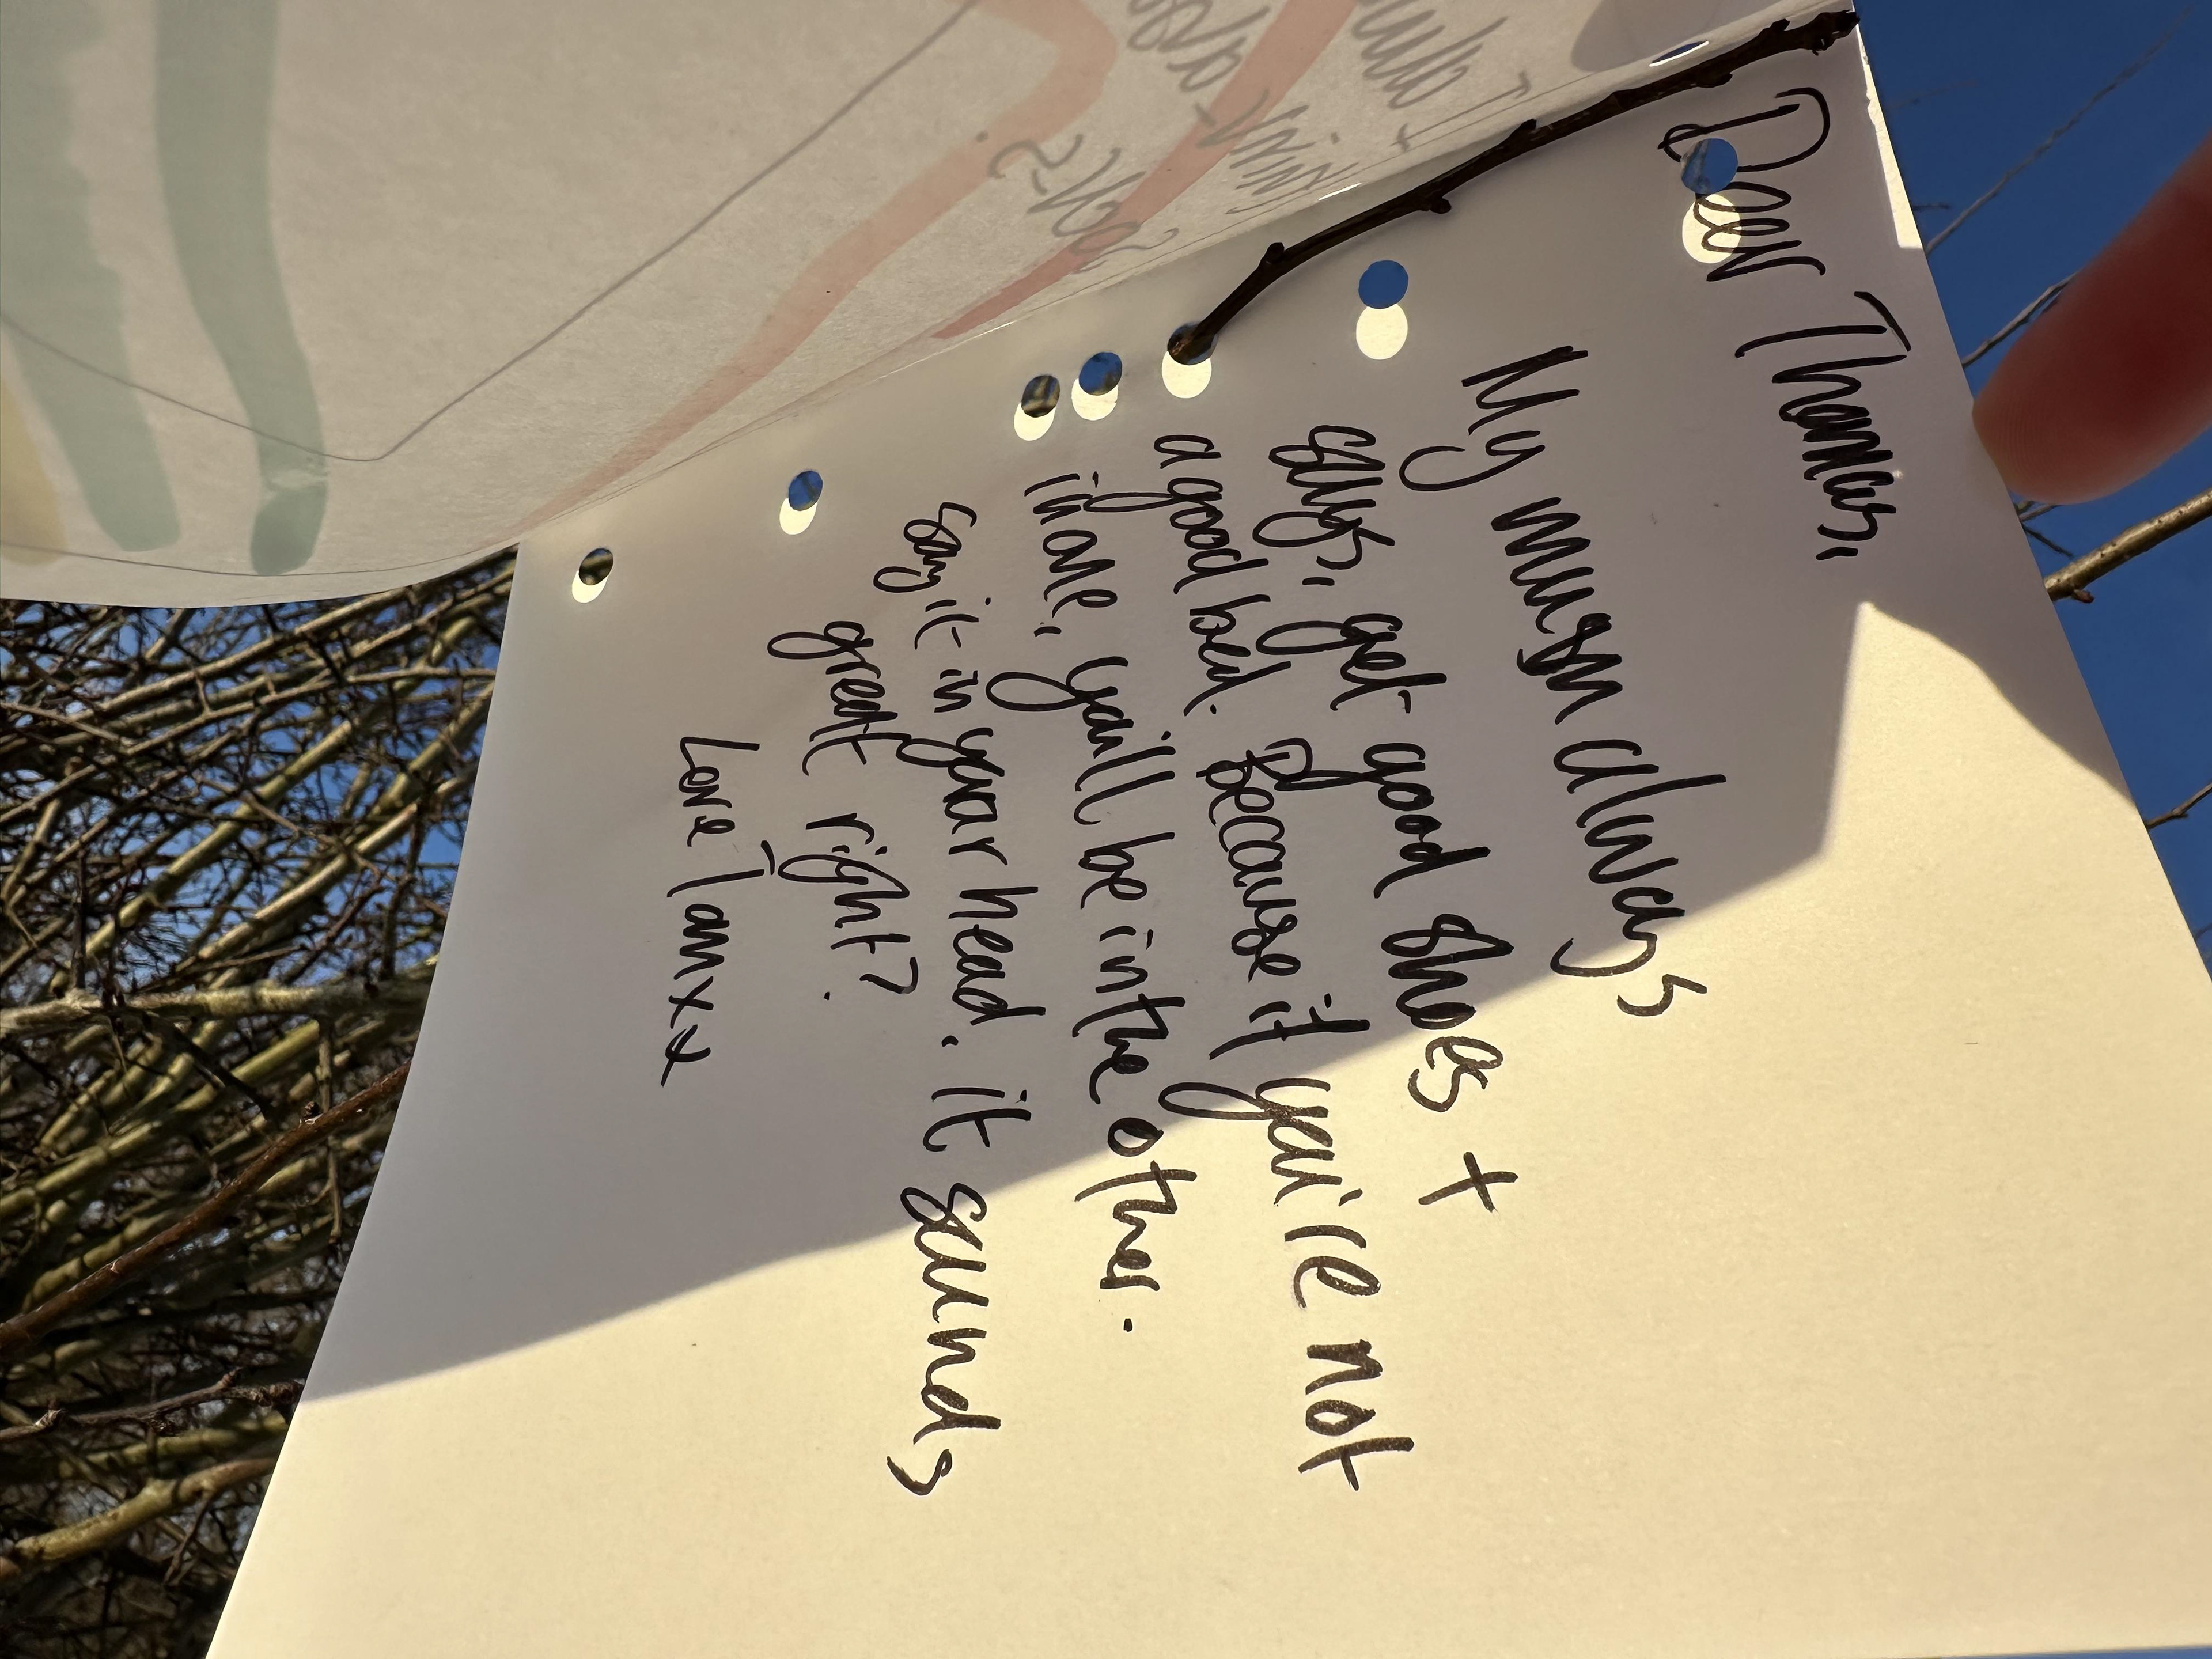 Dear Thomas,
My mum always
says, get good shoes +
a good bed. Because if you're not
in one, you'll be in the other.
Say it in your head. it sounds
great right?
Love Tam xx